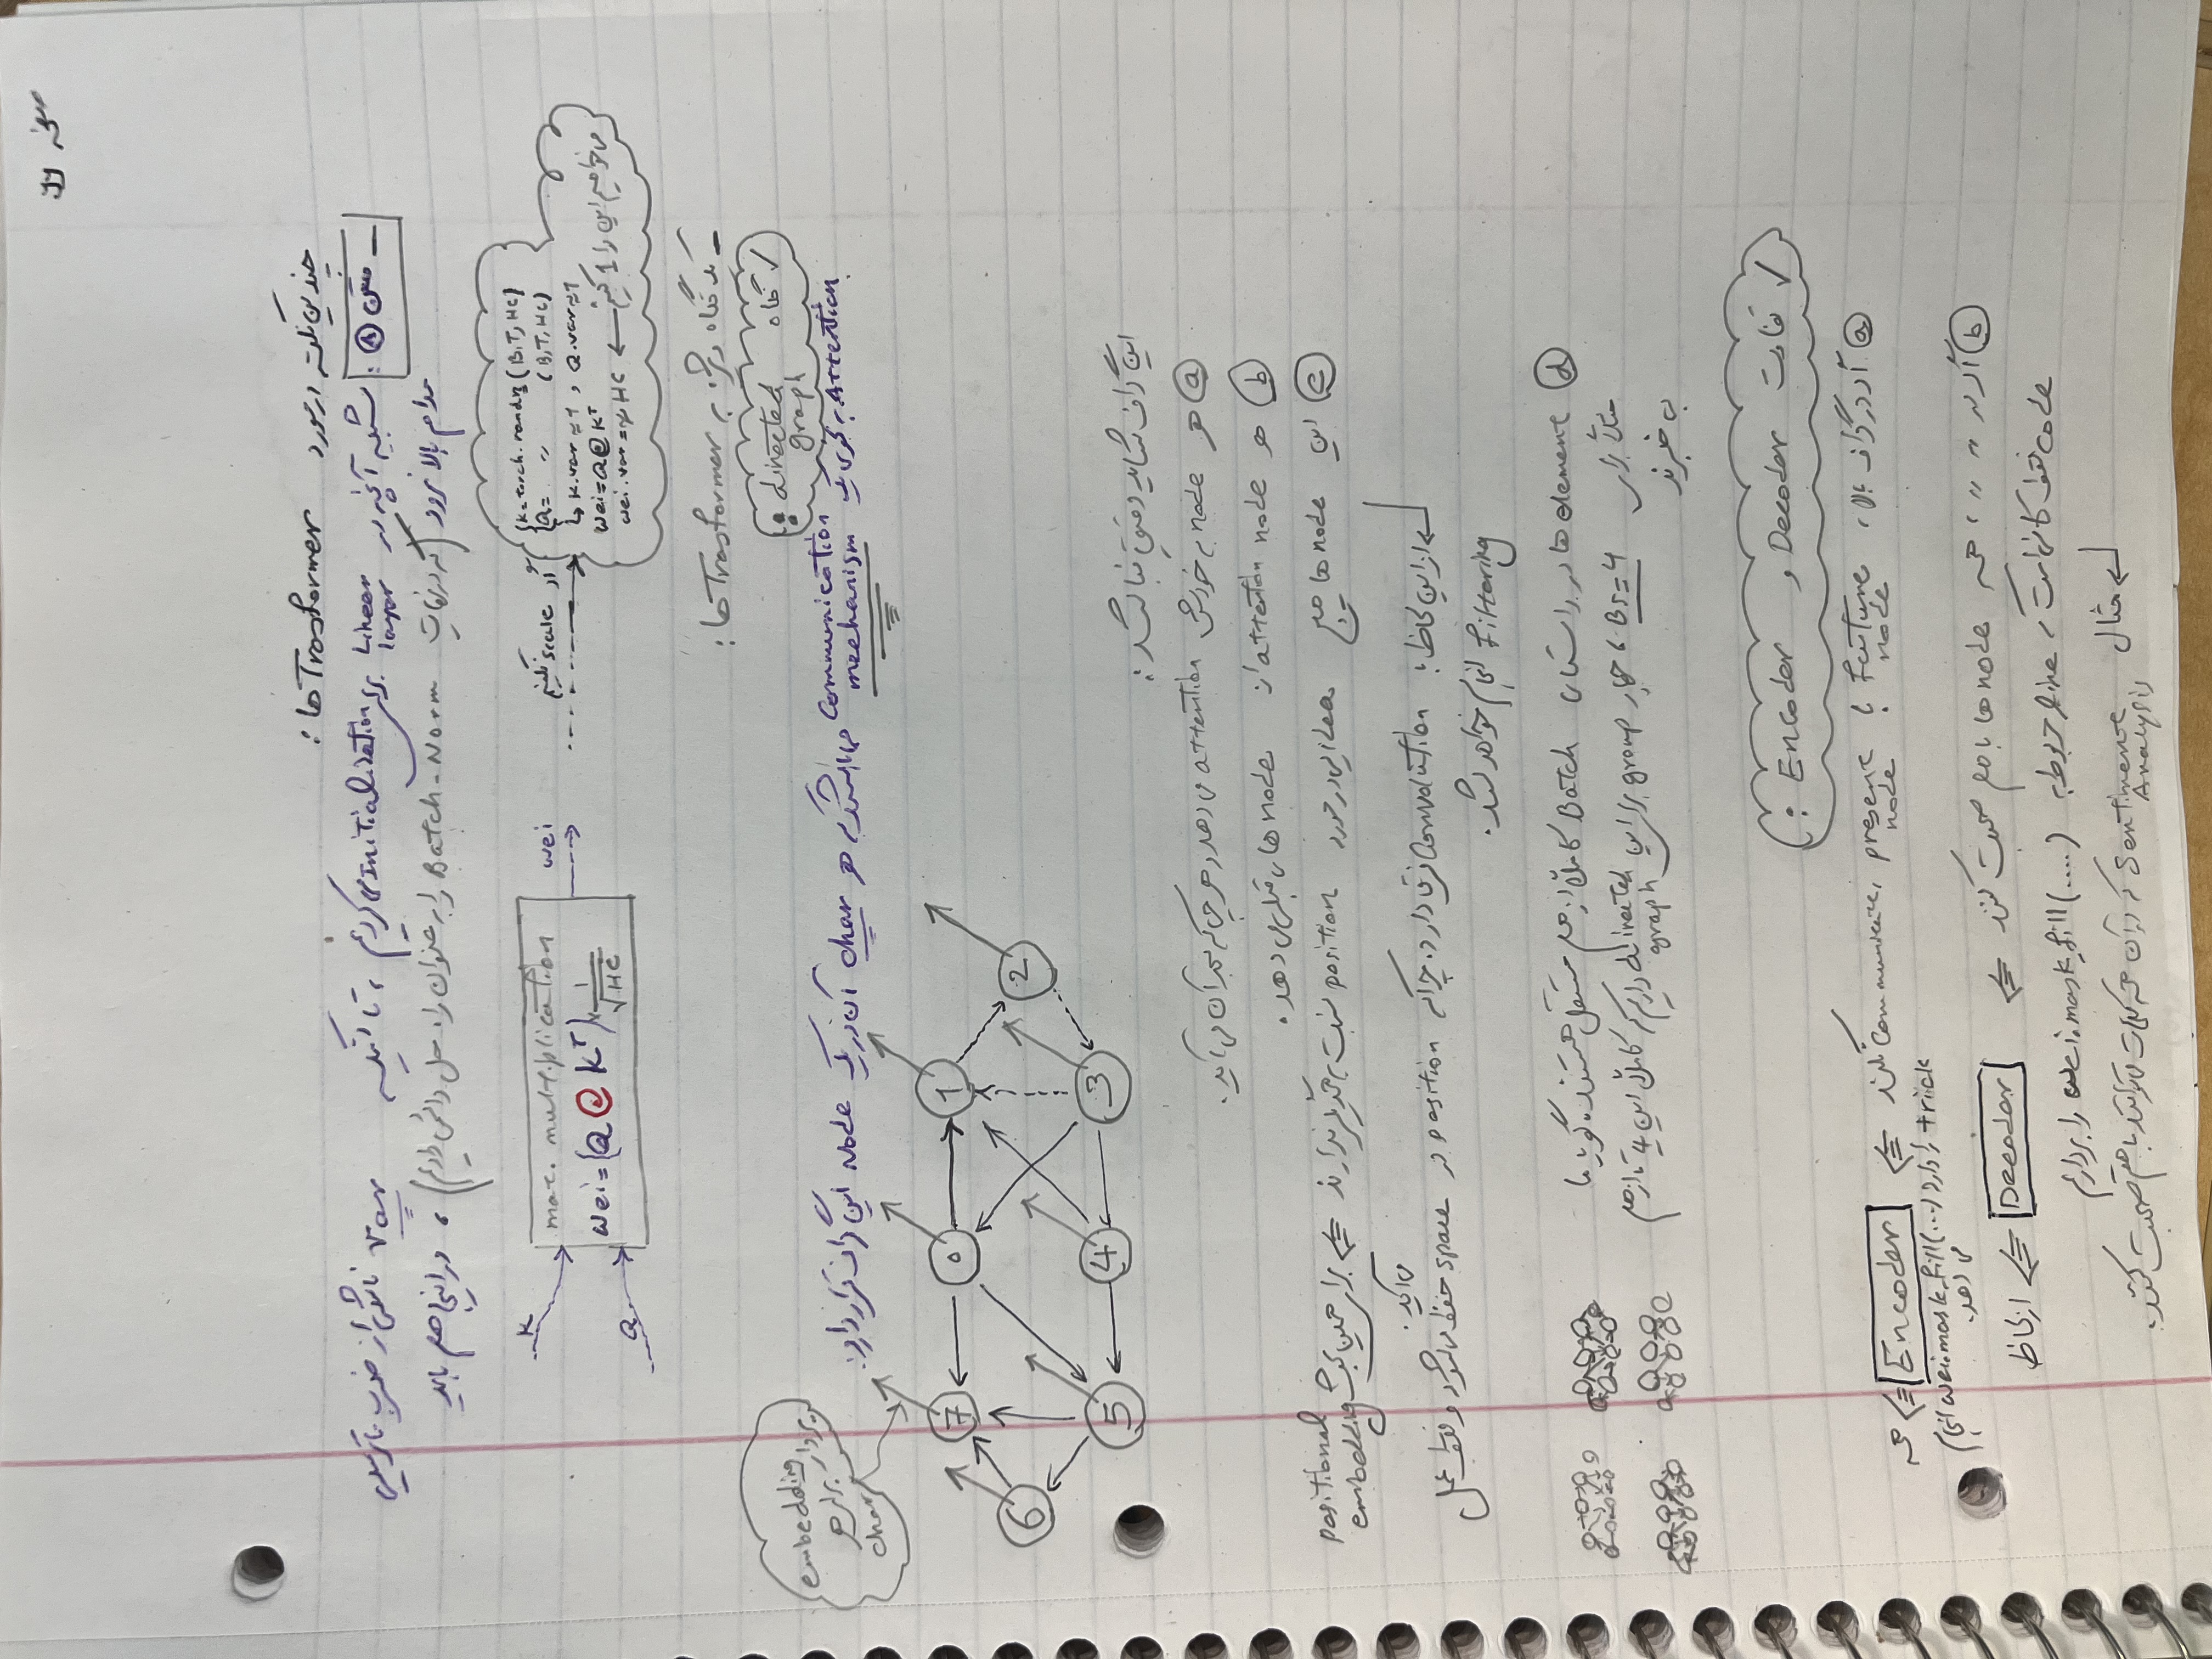 صفحه ۷۲
چندین نکته در مورد Trasformer ها :
– متن Ⓐ : شبیه آنچه در Linear layer برای Initialization می‌کردیم ، تا اینکه var ناشی از ضرب ماتریسی
مدام بالا نرود (که در نهایت Batch-Norm را به عنوان راه حل دائمی دادیم) ، در اینجا هم باید
K
Q
mat. multiplication
wei = (Q @ Kᵀ) * 1/√HC
wei
اگر scale نکنیم
K = torch.randn (B,T,HC)
Q = " (B,T,HC)
↳ K.var ≈ 1 , Q.var ≈ 1
wei = Q @ Kᵀ
wei.var = ~ HC ← می‌خواهیم این را 1 کنیم
– یک نگاه ویژه به Trasformer ها :
✓ نگاه directed graph :
Attention به نحوی یک Communication mechanism می‌باشد که هر char آن در یک Node این گراف قرار دارد :
بردار embedding برای هر char
7 0 1
6 2
5 4 3
این گراف شاید دقیق نباشد :
ⓐ هر node به خودش attention می‌دهد و هر چی که بعد آن می‌آید .
ⓑ هر node attention از node های قبلی می‌دهد .
ⓒ این node ها هیچ idea ایی در مورد position نسبت به همدیگر ندارند ⇐ برای همین بحث positional embedding
می‌آید .
↲ از این لحاظ با Convolution فرق دارد . چرا که position در space حفظ می‌شود و فقط عمل
filtering انجام خواهد شد .
ⓓ element ها در راستای Batch کاملاً از هم مستقل هستند . گویا ما
مثلاً برای Bs=4 ، چهار group برای این directed graph داریم که کاملاً این 4 تا از هم
بی خبرند
✓ تفاوت Decoder و Encoder :
ⓐ اگر در گراف بالا ، future node با present node ، Communicate نکند ⇐ Encoder ⇐ همه
trick را دارد wei.mask_fill(....) انجام
می‌دهد .
ⓑ اگر در " " ، همه node ها با هم صحبت کنند ⇐ Decoder ⇐ از لحاظ
code فقط کافی است که line مربوط به wei.mask_fill(....) را برداریم
↲ مثال Sentiment Analysis که در آن همه کلمات می‌توانند با هم صحبت کنند .